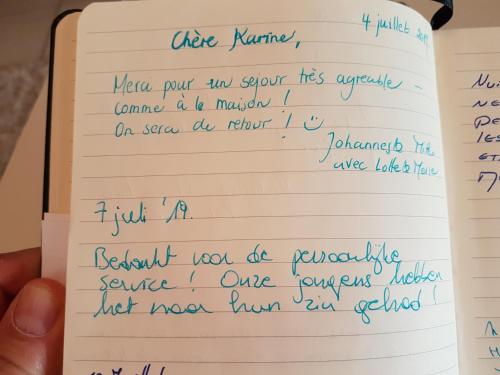 4 juillet
Chère Karine,
Merci pour un sejour très agreable -
comme à la maison !
On sera de retour ! ☺
Johannes &
avec Lotte & Marie
7 juli '19.
Bedankt voor de persoonlijke
service ! Onze jongens hebben
het naar hun zin gehad !